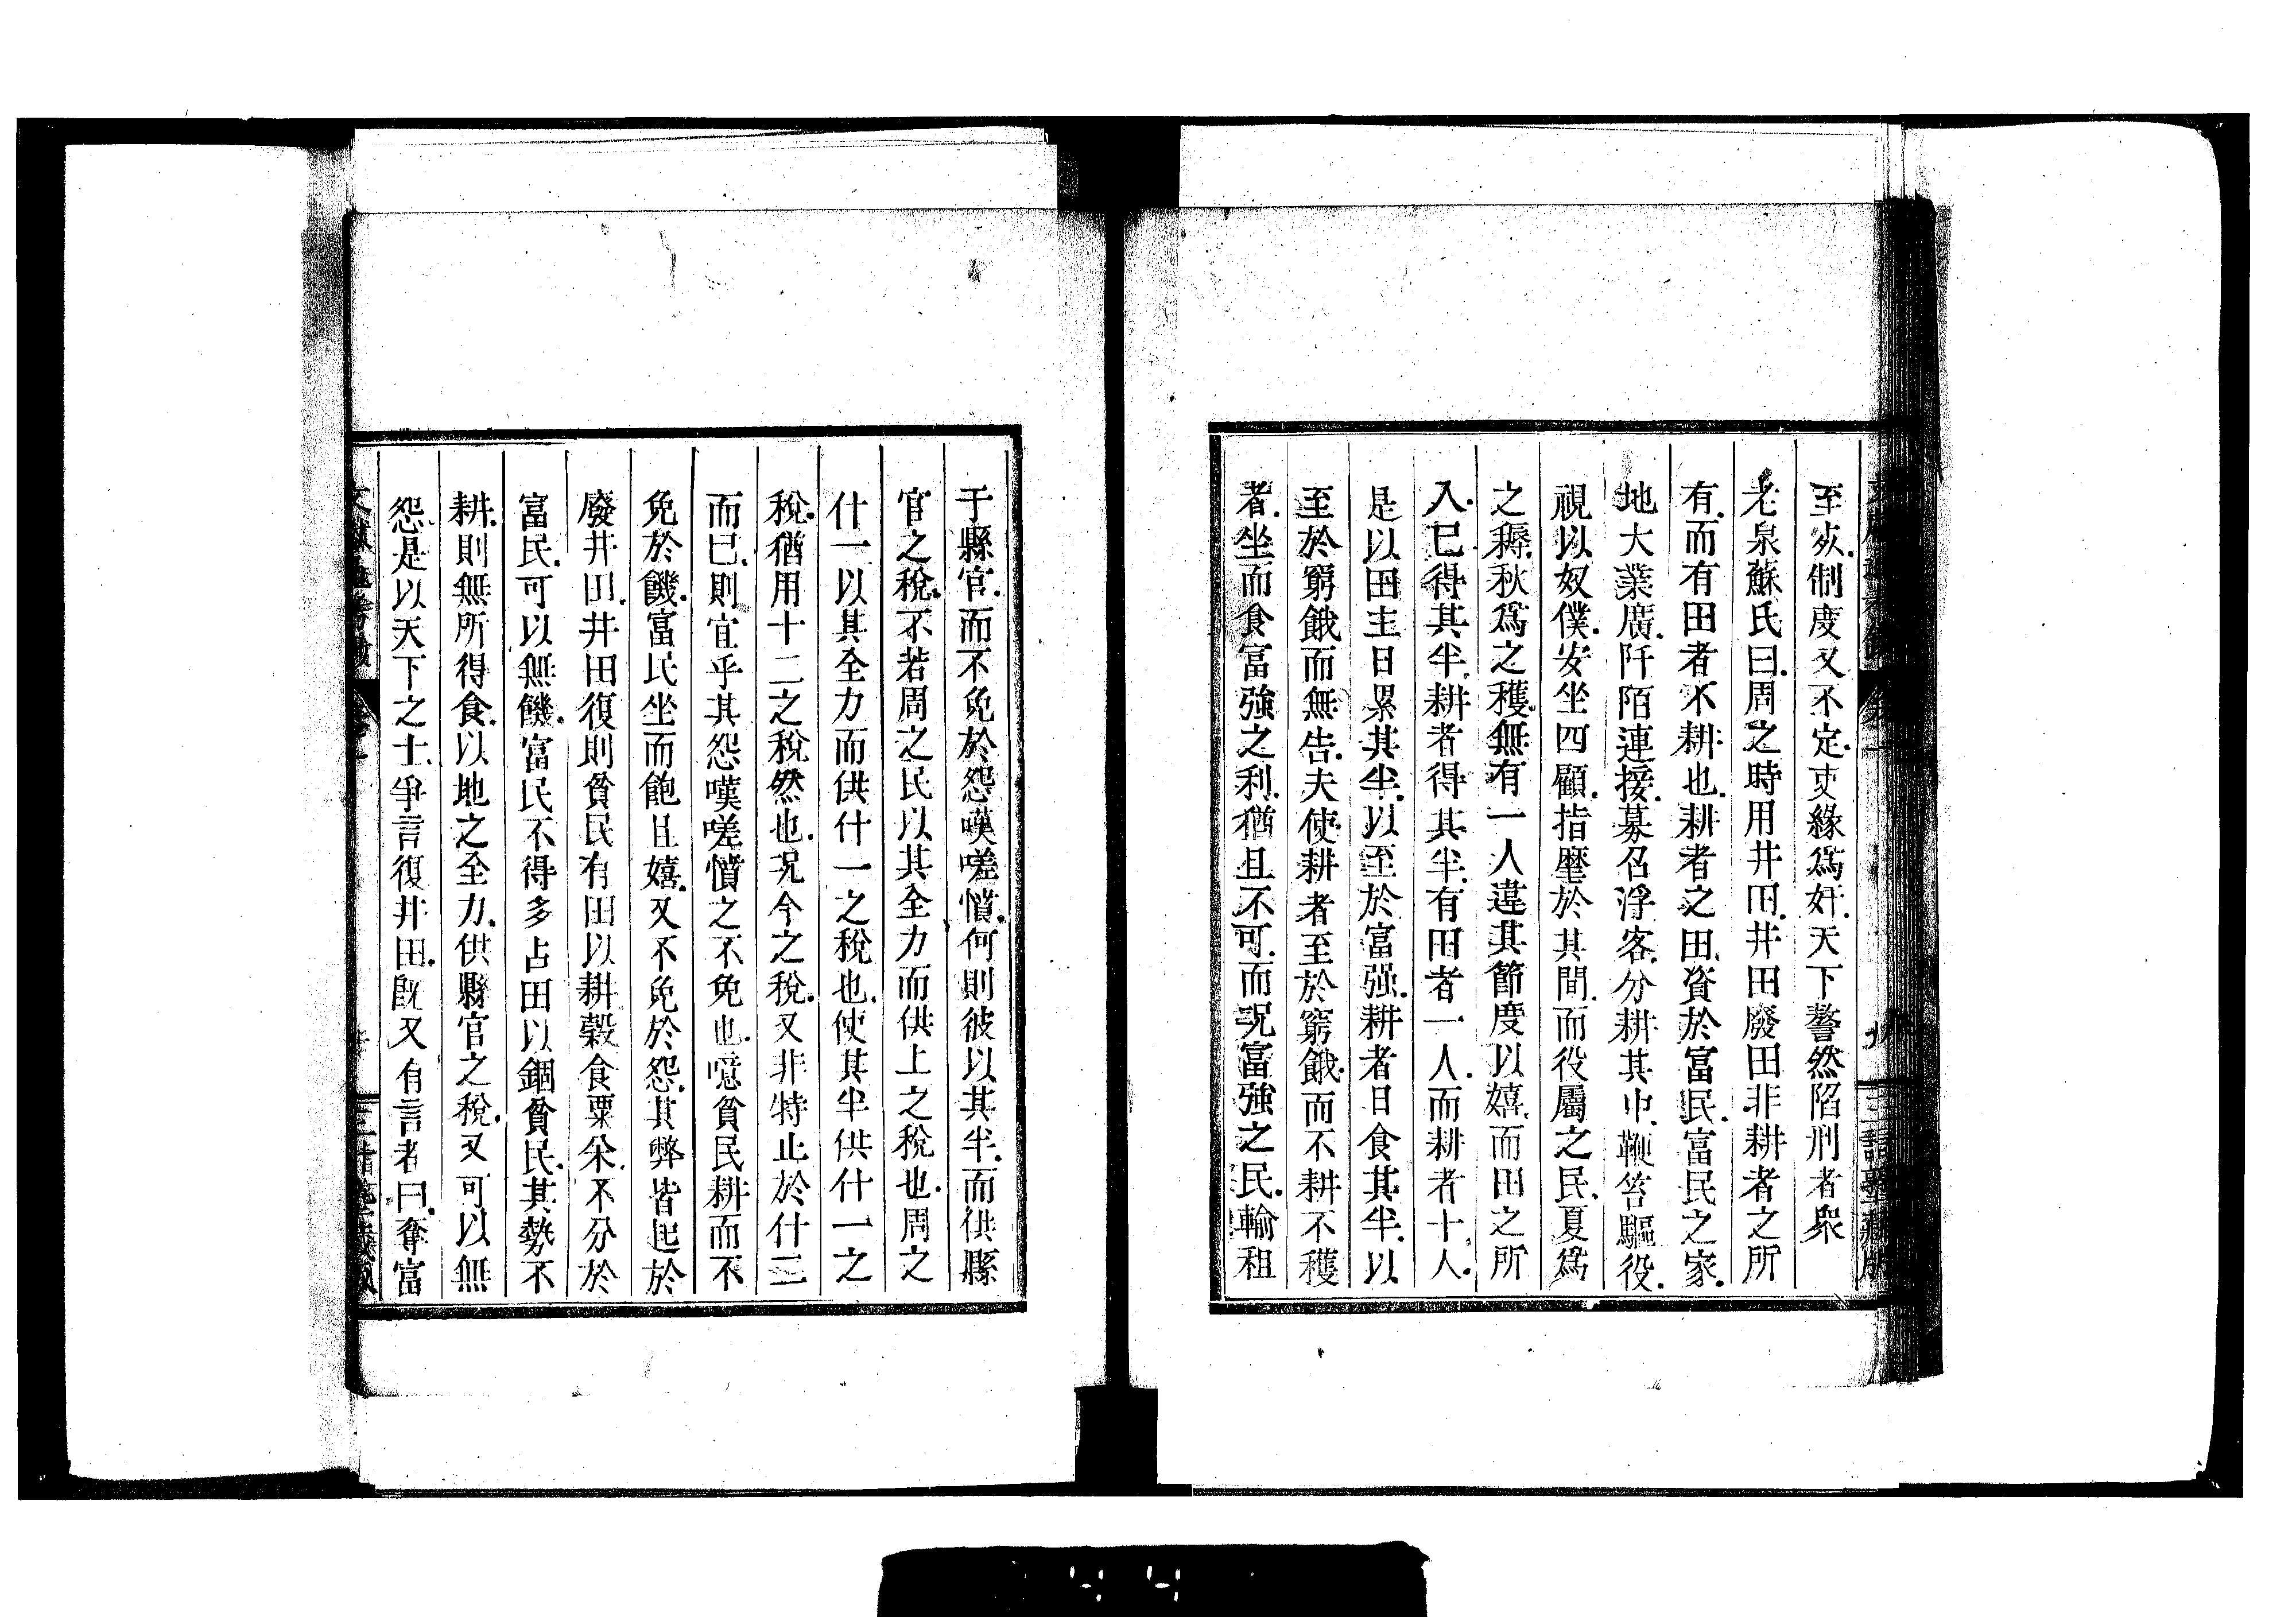 至歿制度又不定吏緣爲奸天下謷然陷刑者衆
老泉蘇氏曰周之時用井田井田廢田非耕者之所
有而有田者不耕也耕者之田資於富民富民之家
地大業廣阡陌連接募召浮客分耕其中鞭笞驅役
視以奴僕安坐四顧指麾於其間而役屬之民夏爲
之耨秋爲之穫無有一人違其節度以嬉而田之所
入已得其半耕者得其半有田者一人而耕者十人
是以田主日累其半以至於富强耕者日食其半以
至於窮餓而無告夫使耕者至於窮餓而不耕不穫
者坐而食富強之利猶且不可而况富強之民輸租
于縣官而不免於怨嘆嗟憤何則彼以其半而供縣
官之稅不若周之民以其全力而供上之稅也周之
什一以其全力而供什一之稅也使其半供什一之
稅猶用十二之稅然也况今之稅又非特止於什一
而已則宜乎其怨嘆嗟憤之不免也噫貧民耕而不
免於饑富民坐而飽且嬉又不免於怨其弊皆起於
廢井田井田復則貧民有田以耕穀食粟米不分於
富民可以無饑富民不得多占田以錮貧民其勢不
耕則無所得食以地之全力供縣官之稅又可以無
怨是以天下之士爭言復井田旣又有言者曰奪富
44